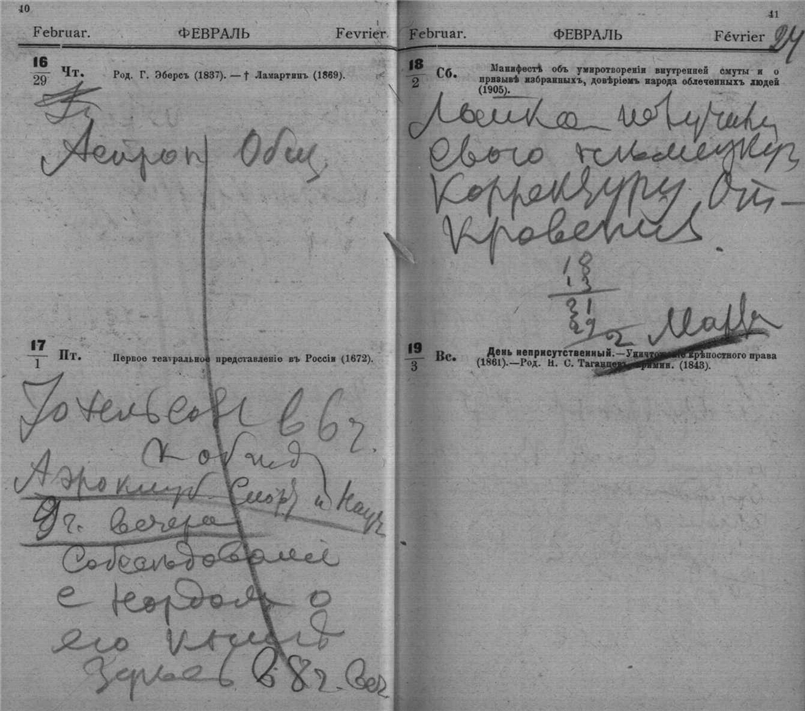 40
Februar. ФЕВРАЛЬ Fevrier.
16
29
Чт. Род. Г. Эберсъ (1837). — † Ламартин (1869).
Общ
17
1
Пт. Первое театральное представленіе въ Россіи (1672).
в 6 ч.
к обед
Аэроклуб. и Наук
9 ч. вечера
Собеседовал
с о
его книге
в 8 ч. веч
41
Februar. ФЕВРАЛЬ Février
24
18
2
Сб. Манифестъ объ умиротвореніи внутренней смуты и о
призывѣ избранныхъ, довѣріемъ народа облеченныхъ людей
(1905).
свою немецкую
корректуру От-
кровения.
18
13
31
29
2 Марта
19
3
Вс. День неприсутственный.—Уничтоженіе крѣпостного права
(1861).—Род. Н. С. (1843).